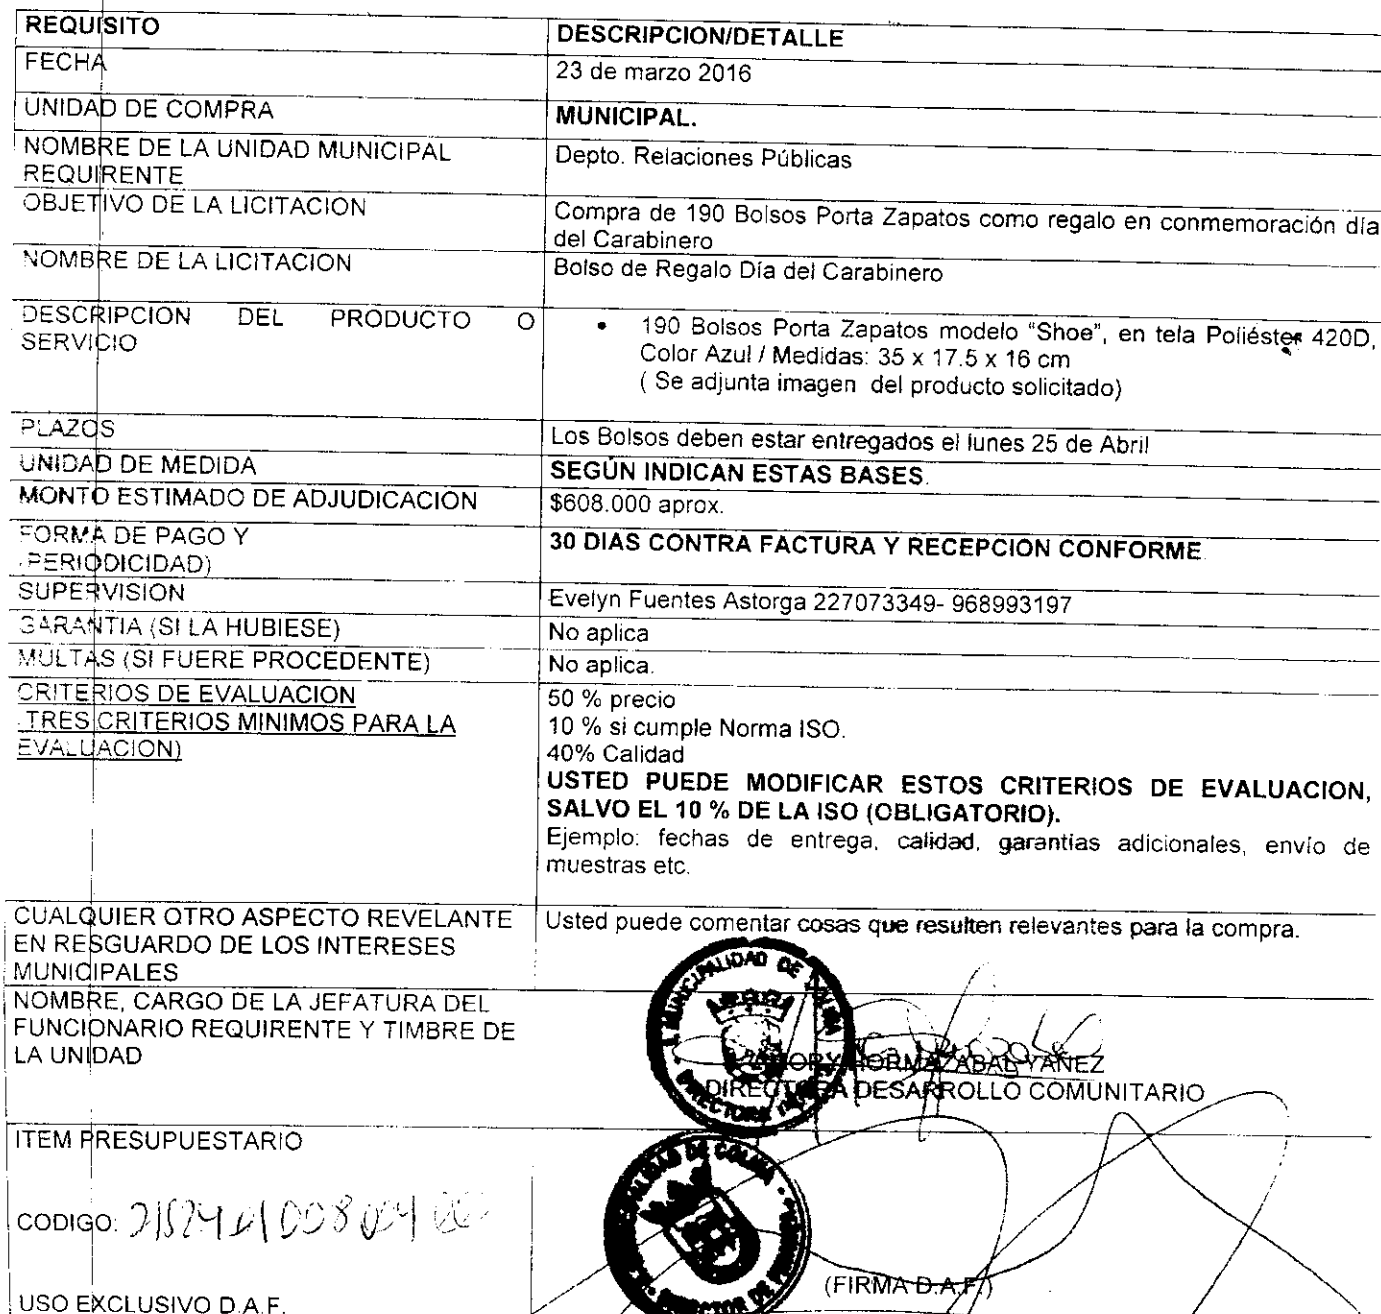 REQUISITO
DESCRIPCION/DETALLE
FECHA
23 de marzo 2016
UNIDAD DE COMPRA
MUNICIPAL.
NOMBRE DE LA UNIDAD MUNICIPAL
REQUIRENTE
Depto. Relaciones Públicas
OBJETIVO DE LA LICITACION
Compra de 190 Bolsos Porta Zapatos como regalo en conmemoración día
del Carabinero
NOMBRE DE LA LICITACION
Bolso de Regalo Día del Carabinero
DESCRIPCION DEL PRODUCTO O
SERVICIO
• 190 Bolsos Porta Zapatos modelo "Shoe", en tela Poliéster 420D,
Color Azul / Medidas: 35 x 17.5 x 16 cm
( Se adjunta imagen del producto solicitado)
PLAZOS
Los Bolsos deben estar entregados el lunes 25 de Abril
UNIDAD DE MEDIDA
SEGÚN INDICAN ESTAS BASES.
MONTO ESTIMADO DE ADJUDICACION
$608.000 aprox.
FORMA DE PAGO Y
PERIODICIDAD)
30 DIAS CONTRA FACTURA Y RECEPCION CONFORME
SUPERVISION
Evelyn Fuentes Astorga 227073349- 968993197
GARANTIA (SI LA HUBIESE)
No aplica
MULTAS (SI FUERE PROCEDENTE)
No aplica.
CRITERIOS DE EVALUACION
TRES CRITERIOS MINIMOS PARA LA
EVALUACION)
50 % precio
10 % si cumple Norma ISO.
40% Calidad
USTED PUEDE MODIFICAR ESTOS CRITERIOS DE EVALUACION,
SALVO EL 10 % DE LA ISO (OBLIGATORIO).
Ejemplo: fechas de entrega, calidad, garantías adicionales, envío de
muestras etc.
CUALQUIER OTRO ASPECTO REVELANTE
EN RESGUARDO DE LOS INTERESES
MUNICIPALES
Usted puede comentar cosas que resulten relevantes para la compra.
NOMBRE, CARGO DE LA JEFATURA DEL
FUNCIONARIO REQUIRENTE Y TIMBRE DE
LA UNIDAD
I. MUNICIPALIDAD DE COLINA
DIRECTORA
HORMAZABAL YAÑEZ
DIRECTORA DESARROLLO COMUNITARIO
ITEM PRESUPUESTARIO
CODIGO:
DE COLINA
DIRECTOR DE
(FIRMA D.A.F.)
USO EXCLUSIVO D.A.F.